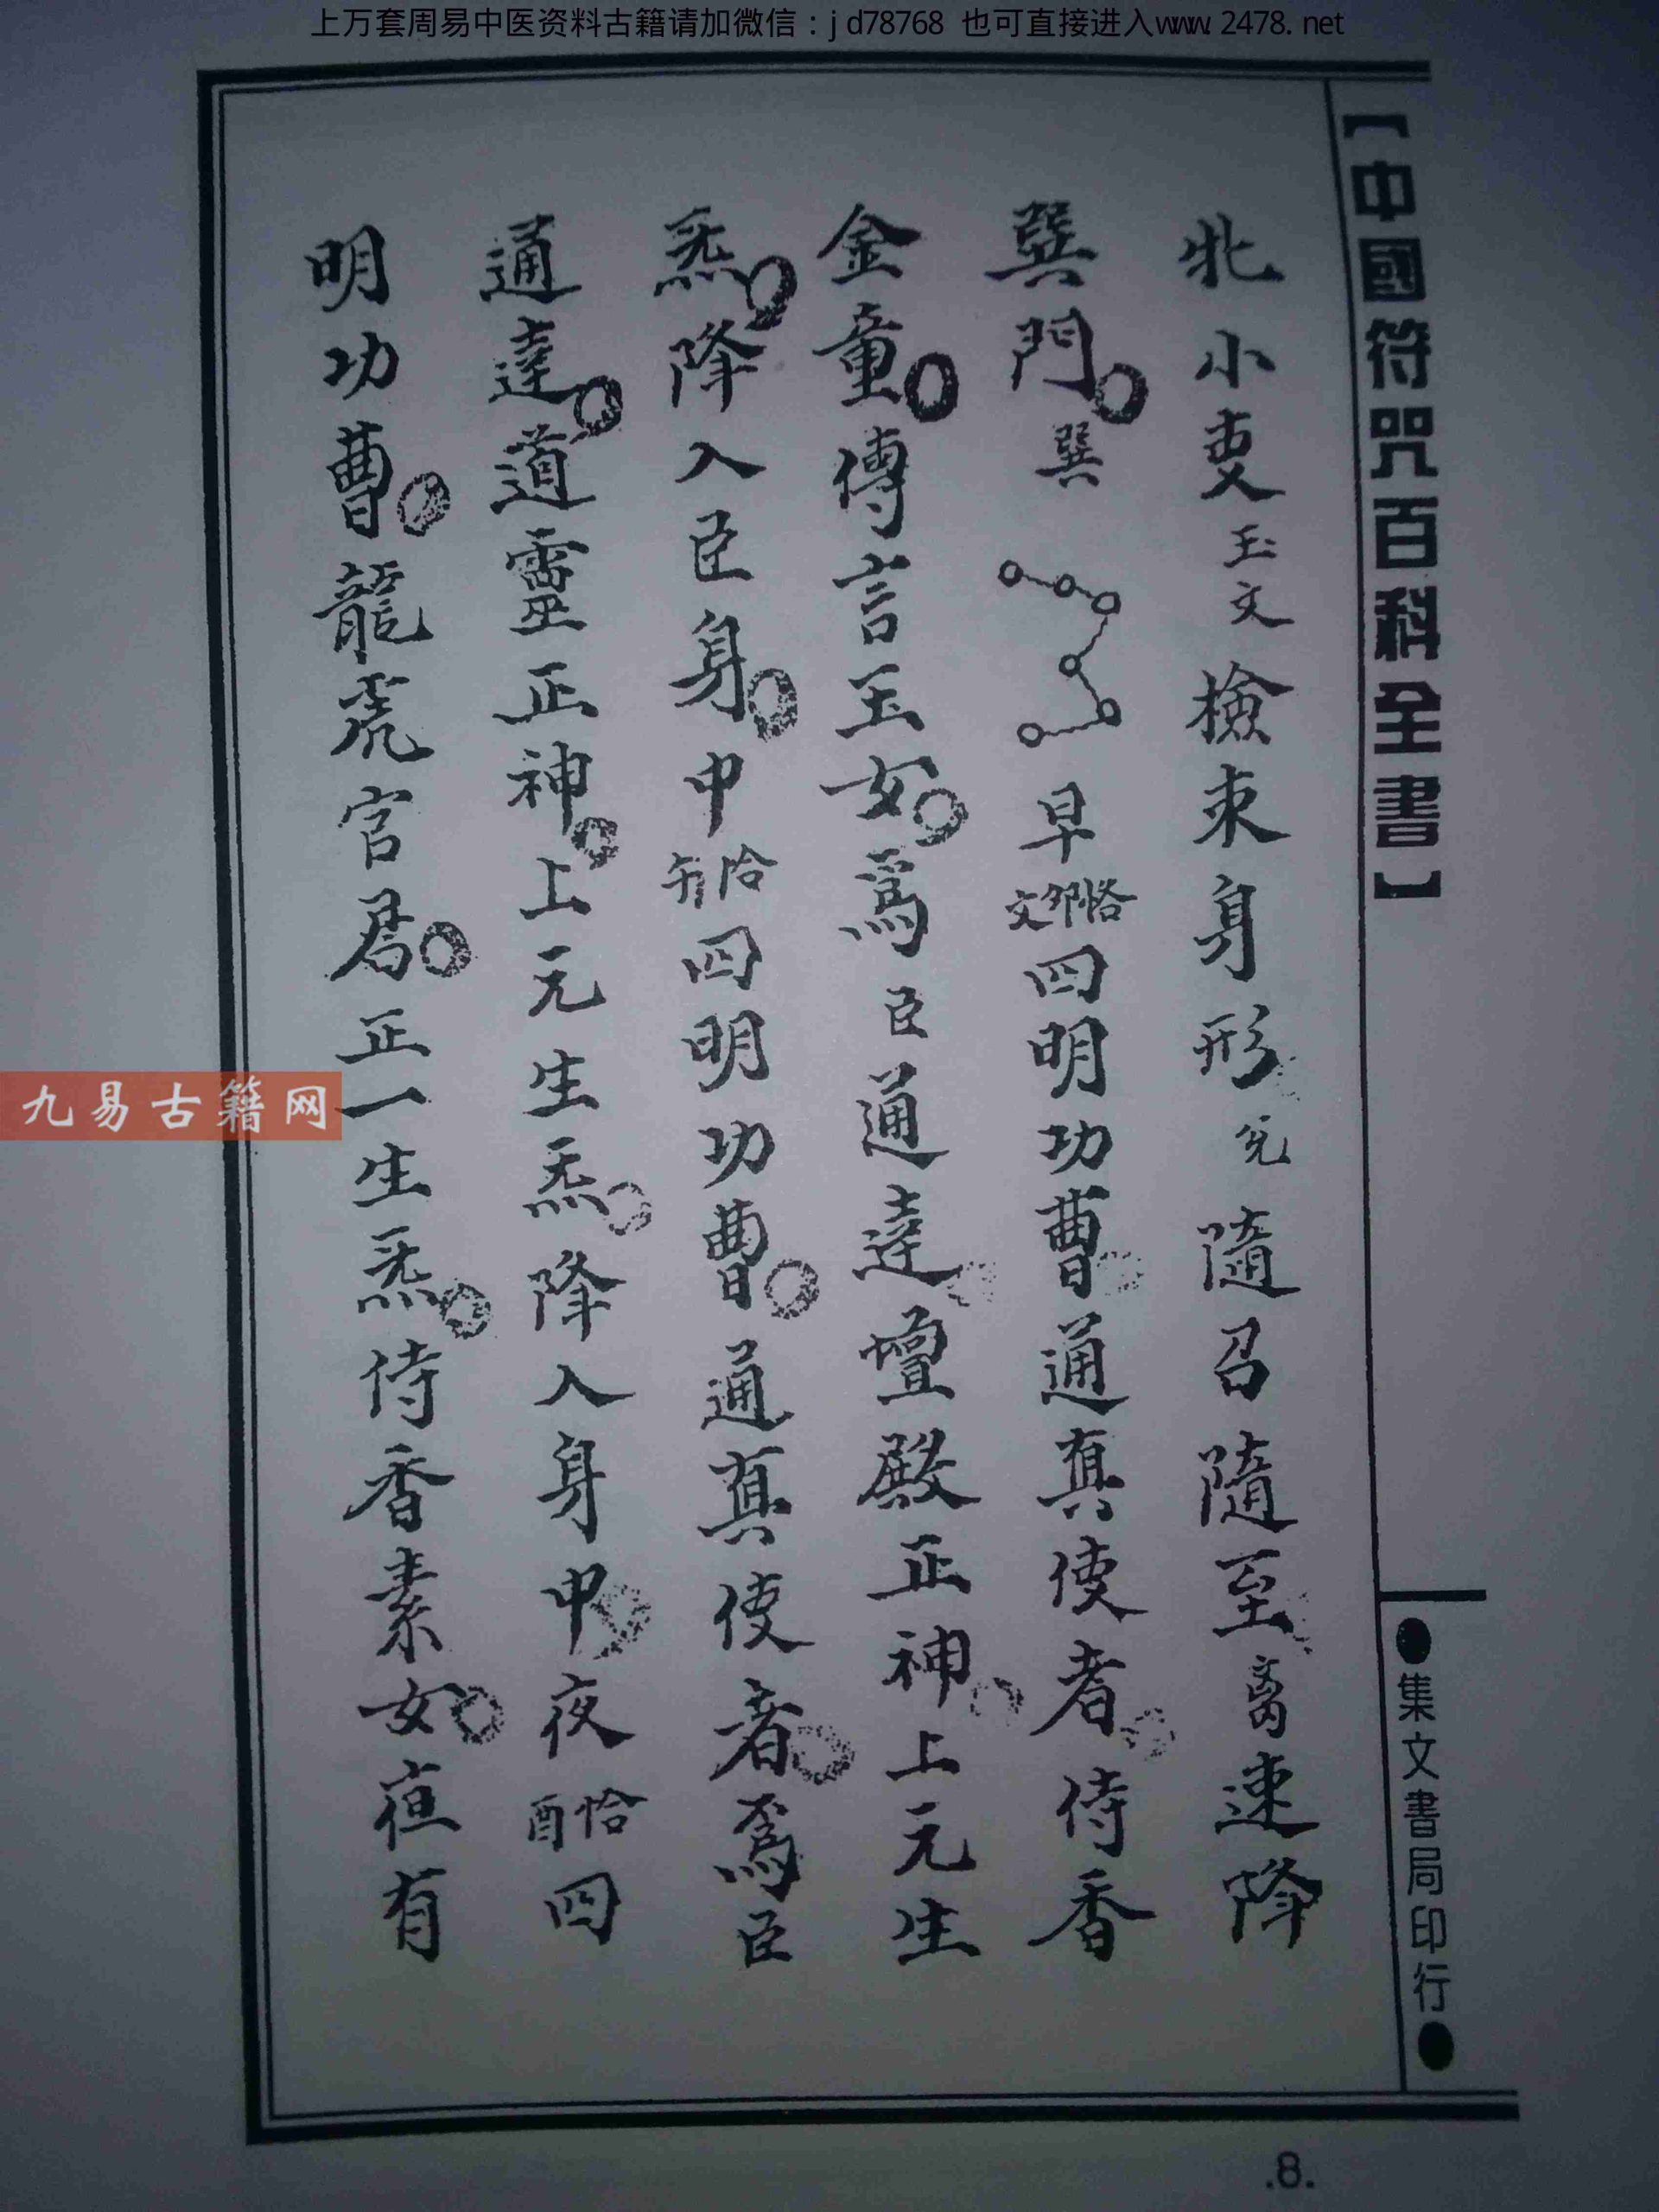 上万套周易中医资料古籍请加微信：jd78768 也可直接进入www.2478.net
【中國符咒百科全書】
●集文書局印行●
北小吏玉文檢束身形兌隨召隨至离速降
巽門巽早恪鄉文四明功曹通真使者侍香
金童傳言玉女為臣通達壇殿正神上元生
炁降入臣身中恰午四明功曹通真使者為臣
通達道靈正神上元生炁降入身中夜恰酉四
明功曹龍虎官君正一生炁侍香素女直有
九易古籍网
.8.